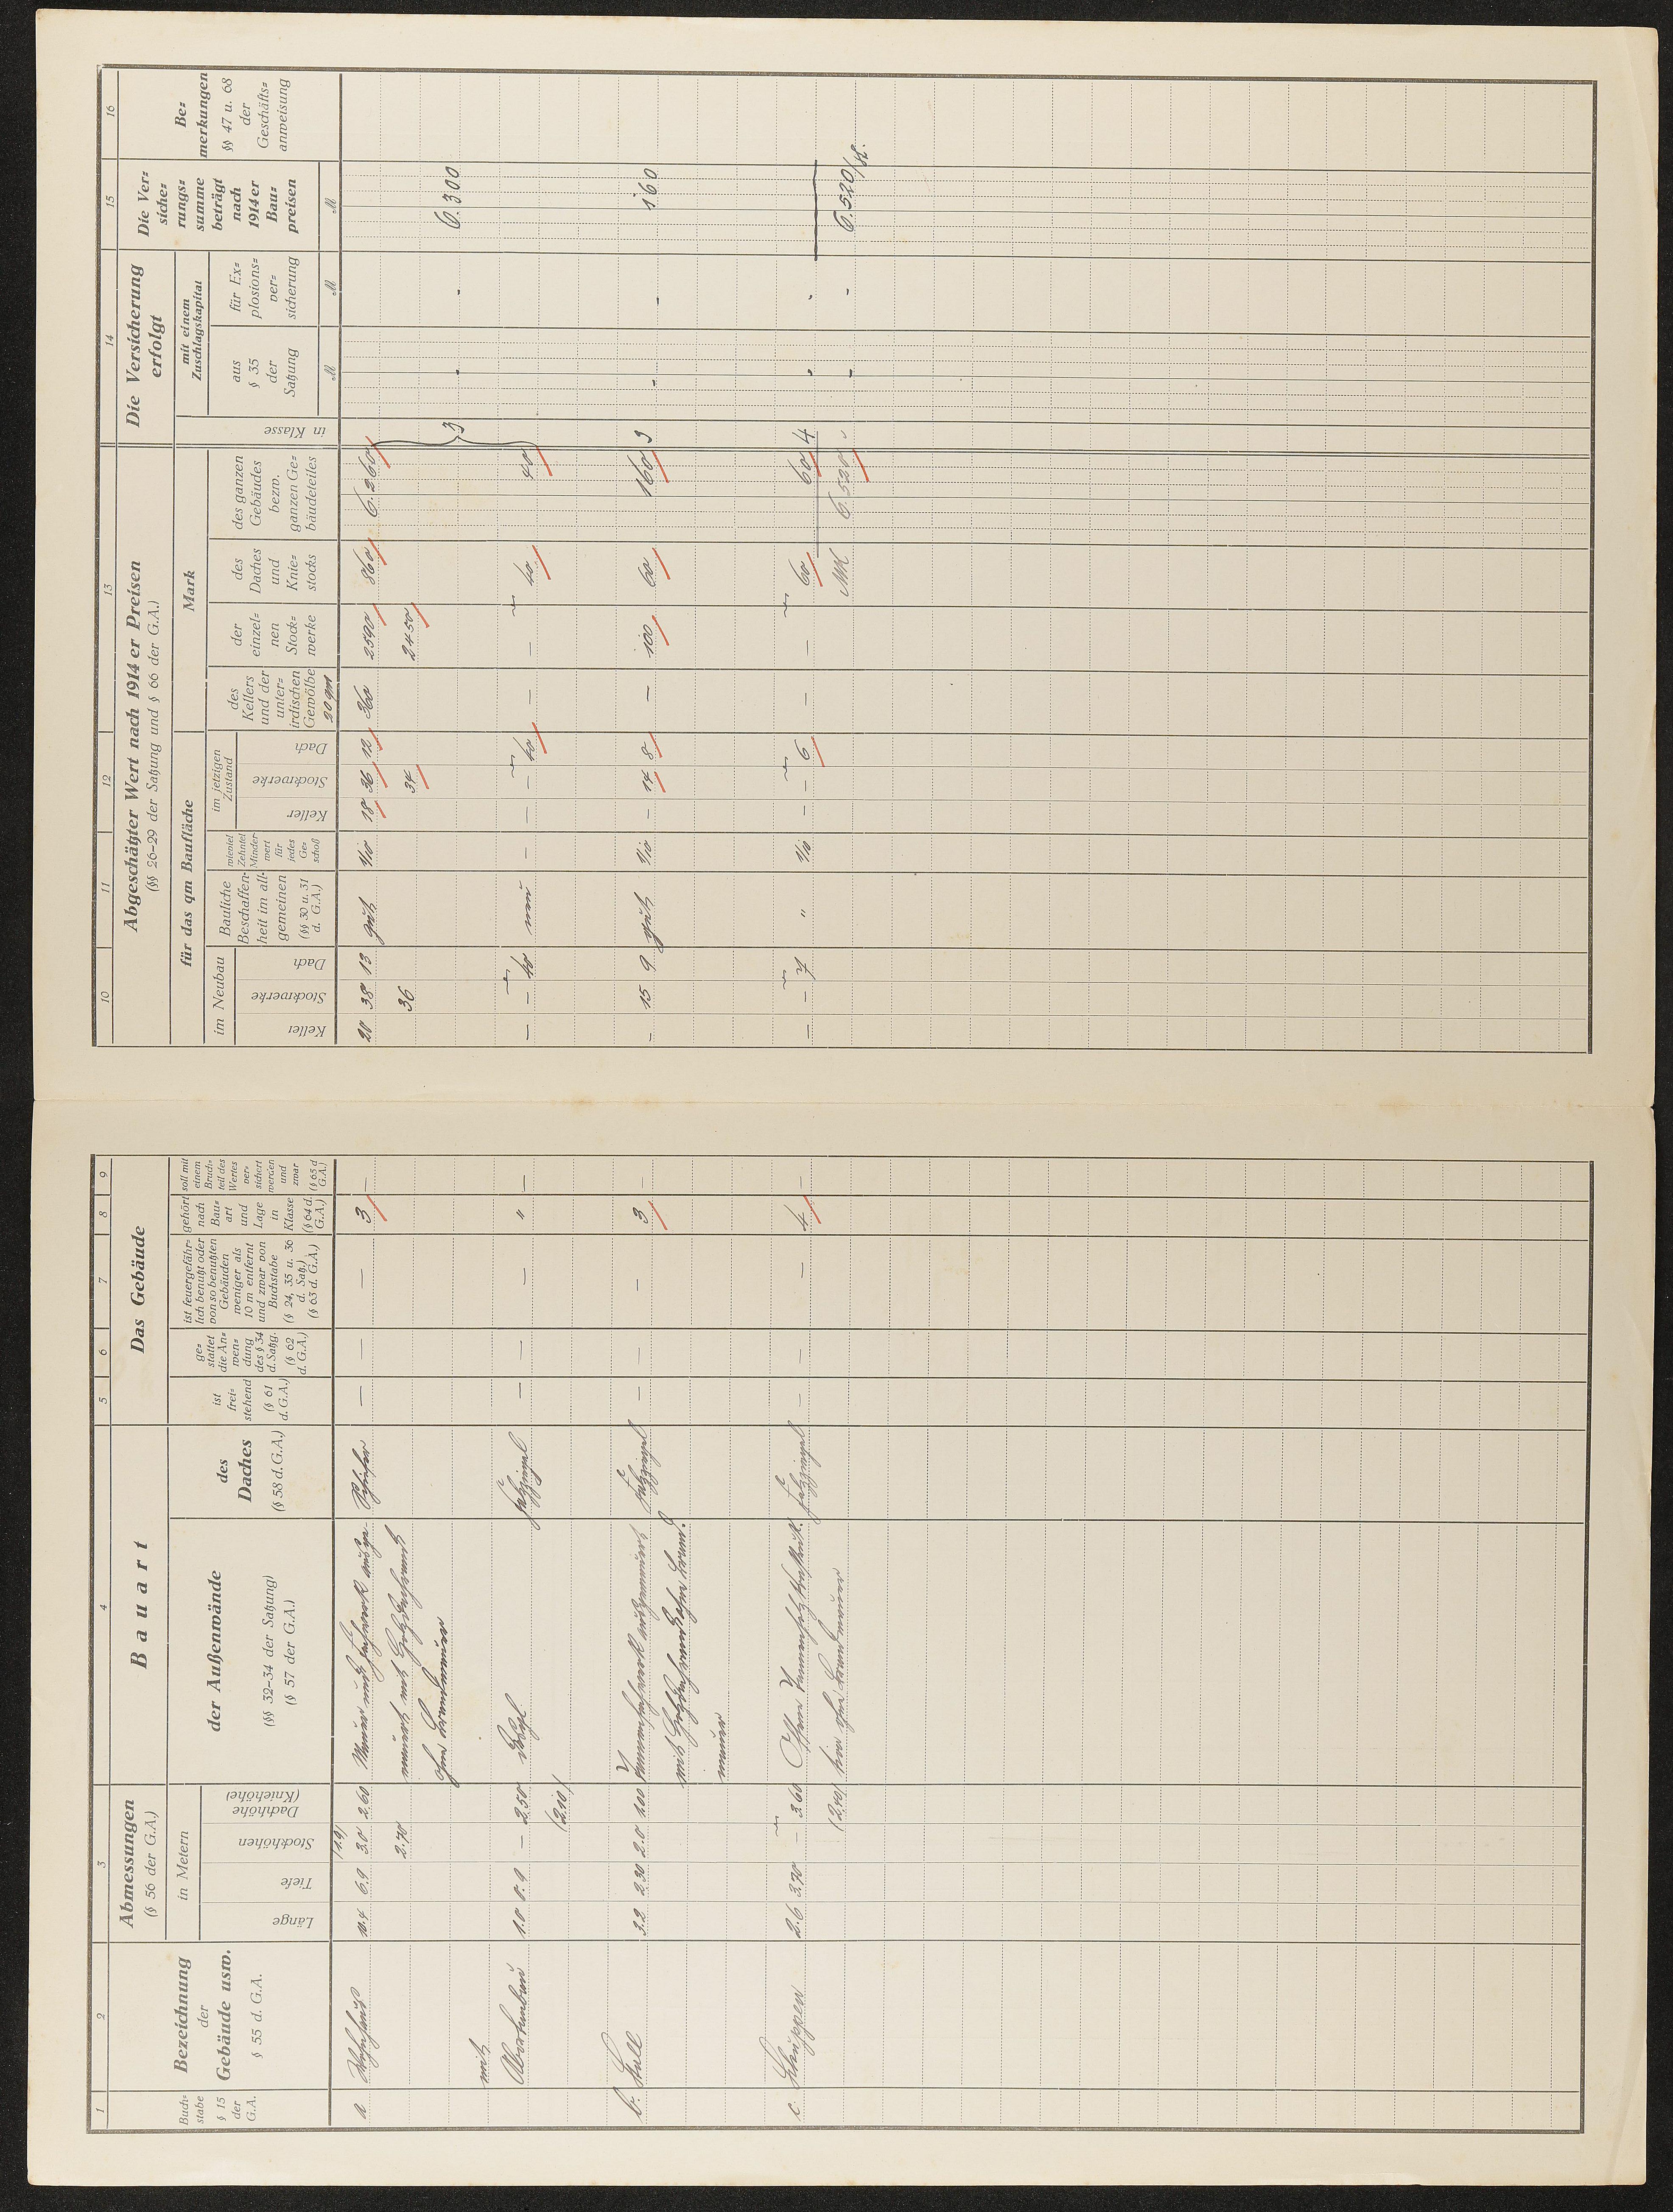 1
2
3
4
5
6
7
8
9
Buch=
stabe
§ 15
der
G.A.
Bezeichnung
der
Gebäude usw.
§ 55 d. G.A.
Abmessungen
(§ 56 der G.A.)
in Metern
Länge
Tiefe
Stockhöhen
Dachhöhe
(Kniehöhe)
Bauart
der Außenwände
(§§ 32–34 der Satzung)
(§ 57 der G.A.)
des
Daches
(§ 58 d. G.A.)
Das Gebäude
ist
frei=
stehend
(§ 61
d. G.A.)
ge=
stattet
die An=
wen=
dung
des § 34
d. Satzg.
(§ 62
d. G.A.)
ist feuergefähr=
lich benutzt oder
von so benutzten
Gebäuden
weniger als
10 m entfernt
und zwar von
Buchstabe
(§ 24, 35 u. 36
d. Satz.)
(§ 63 d. G.A.)
gehört
nach
Bau=
art
und
Lage
in
Klasse
(§ 64 d.
G.A.)
soll mit
einem
Bruch=
teil des
Wertes
ver=
sichert
werden
und
zwar
(§ 65 d
G.A.)
a Wohnhaus 10.4 6.9 3.0 2.60 Mauer und Fachwerk ausge- Schiefer — — — 3 —
2.70 mauert mit Holzdachgesims
ohne Brandmauer
mit
Abortanbau 1.0 0.9 — 2.50 Falzziegel — — — " —
(2.10)
b. Stall 3.2 2.30 2.0 1.00 Tannenfachwerk ausgemauert Falzziegel — — — 3 —
mauer
c. Schuppen 2.6 3.70 — 3.60 Offene Falzziegel — — — 4 —
(2.40) ohne Brandmauer
10
11
12
13
14
15
16
Abgeschätzter Wert nach 1914 er Preisen
(§§ 26–29 der Satzung und § 66 der G.A.)
für das qm Baufläche
im Neubau
Keller
Stockwerke
Dach
Bauliche
Beschaffen-
heit im all-
gemeinen
(§§ 30 u. 31
d. G.A.)
wieviel
Zehntel
Minder-
wert
für
jedes
Ge=
schoß
im jetzigen
Zustand
Keller
Stockwerke
Dach
Mark
des
Kellers
und der
unter=
irdischen
Gewölbe
20 qm
der
einzel=
nen
Stock=
werke
des
Daches
und
Knie=
stocks
des ganzen
Gebäudes
bezw.
ganzen Ge=
bäudeteiles
Die Versicherung
erfolgt
in Klasse
mit einem
Zuschlagskapital
aus
§ 35
der
Satzung
M
für Ex=
plosions=
ver=
sicherung
M
Die Ver=
siche=
rungs=
summe
beträgt
nach
1914 er
Bau=
preisen
M
Be=
merkungen
§§ 47 u. 68
der
Geschäfts=
anweisung
20 38 13 gut 1/10 18 36 12 360 2590 860 6.260
36 34 2450
3 - - 6.300
— — 40 neu — — — 40 — — 40 40
- 15 9 gut 1/10 — 14 8 — 100 60 160 3 - - 160
— — 7 " 1/10 — — 6 — — 60 60 4 - -
Mk 6.520 - - 6.520